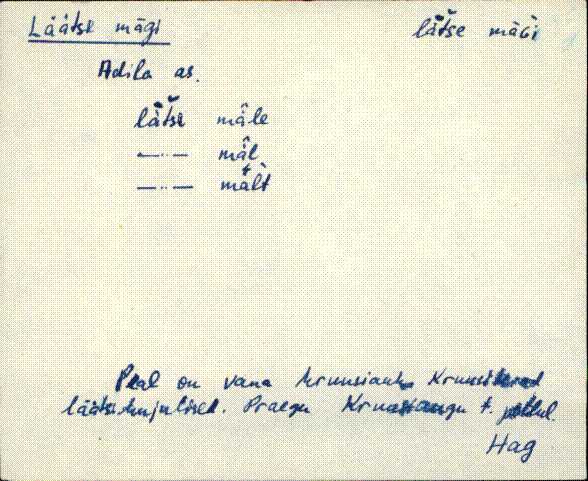 Läätse mägi lät̆se mäǵi
Adila as.
lät̆se mäle
—··— mäl
—··— mält
Peal on vana kruusiauk. Kruusiterad
läätsekujulised. Praegu t. põllul.
Hag